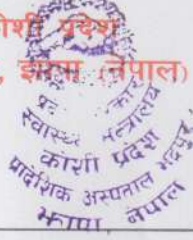 कोशी प्रदेश
, झापा (नेपाल)
स्वास्थ्य मन्त्रालय
कोशी प्रदेश
प्रादेशिक अस्पताल भद्रपुर,
झापा, नेपाल